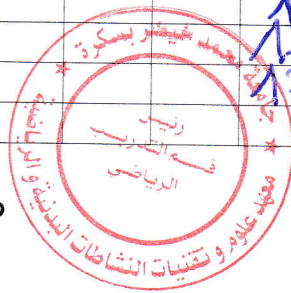 جامعة محمد خيضر بسكرة
معهد علوم و تقنيات النشاطات البدنية والرياضية
رئيس
قسم التدريب
الرياضي